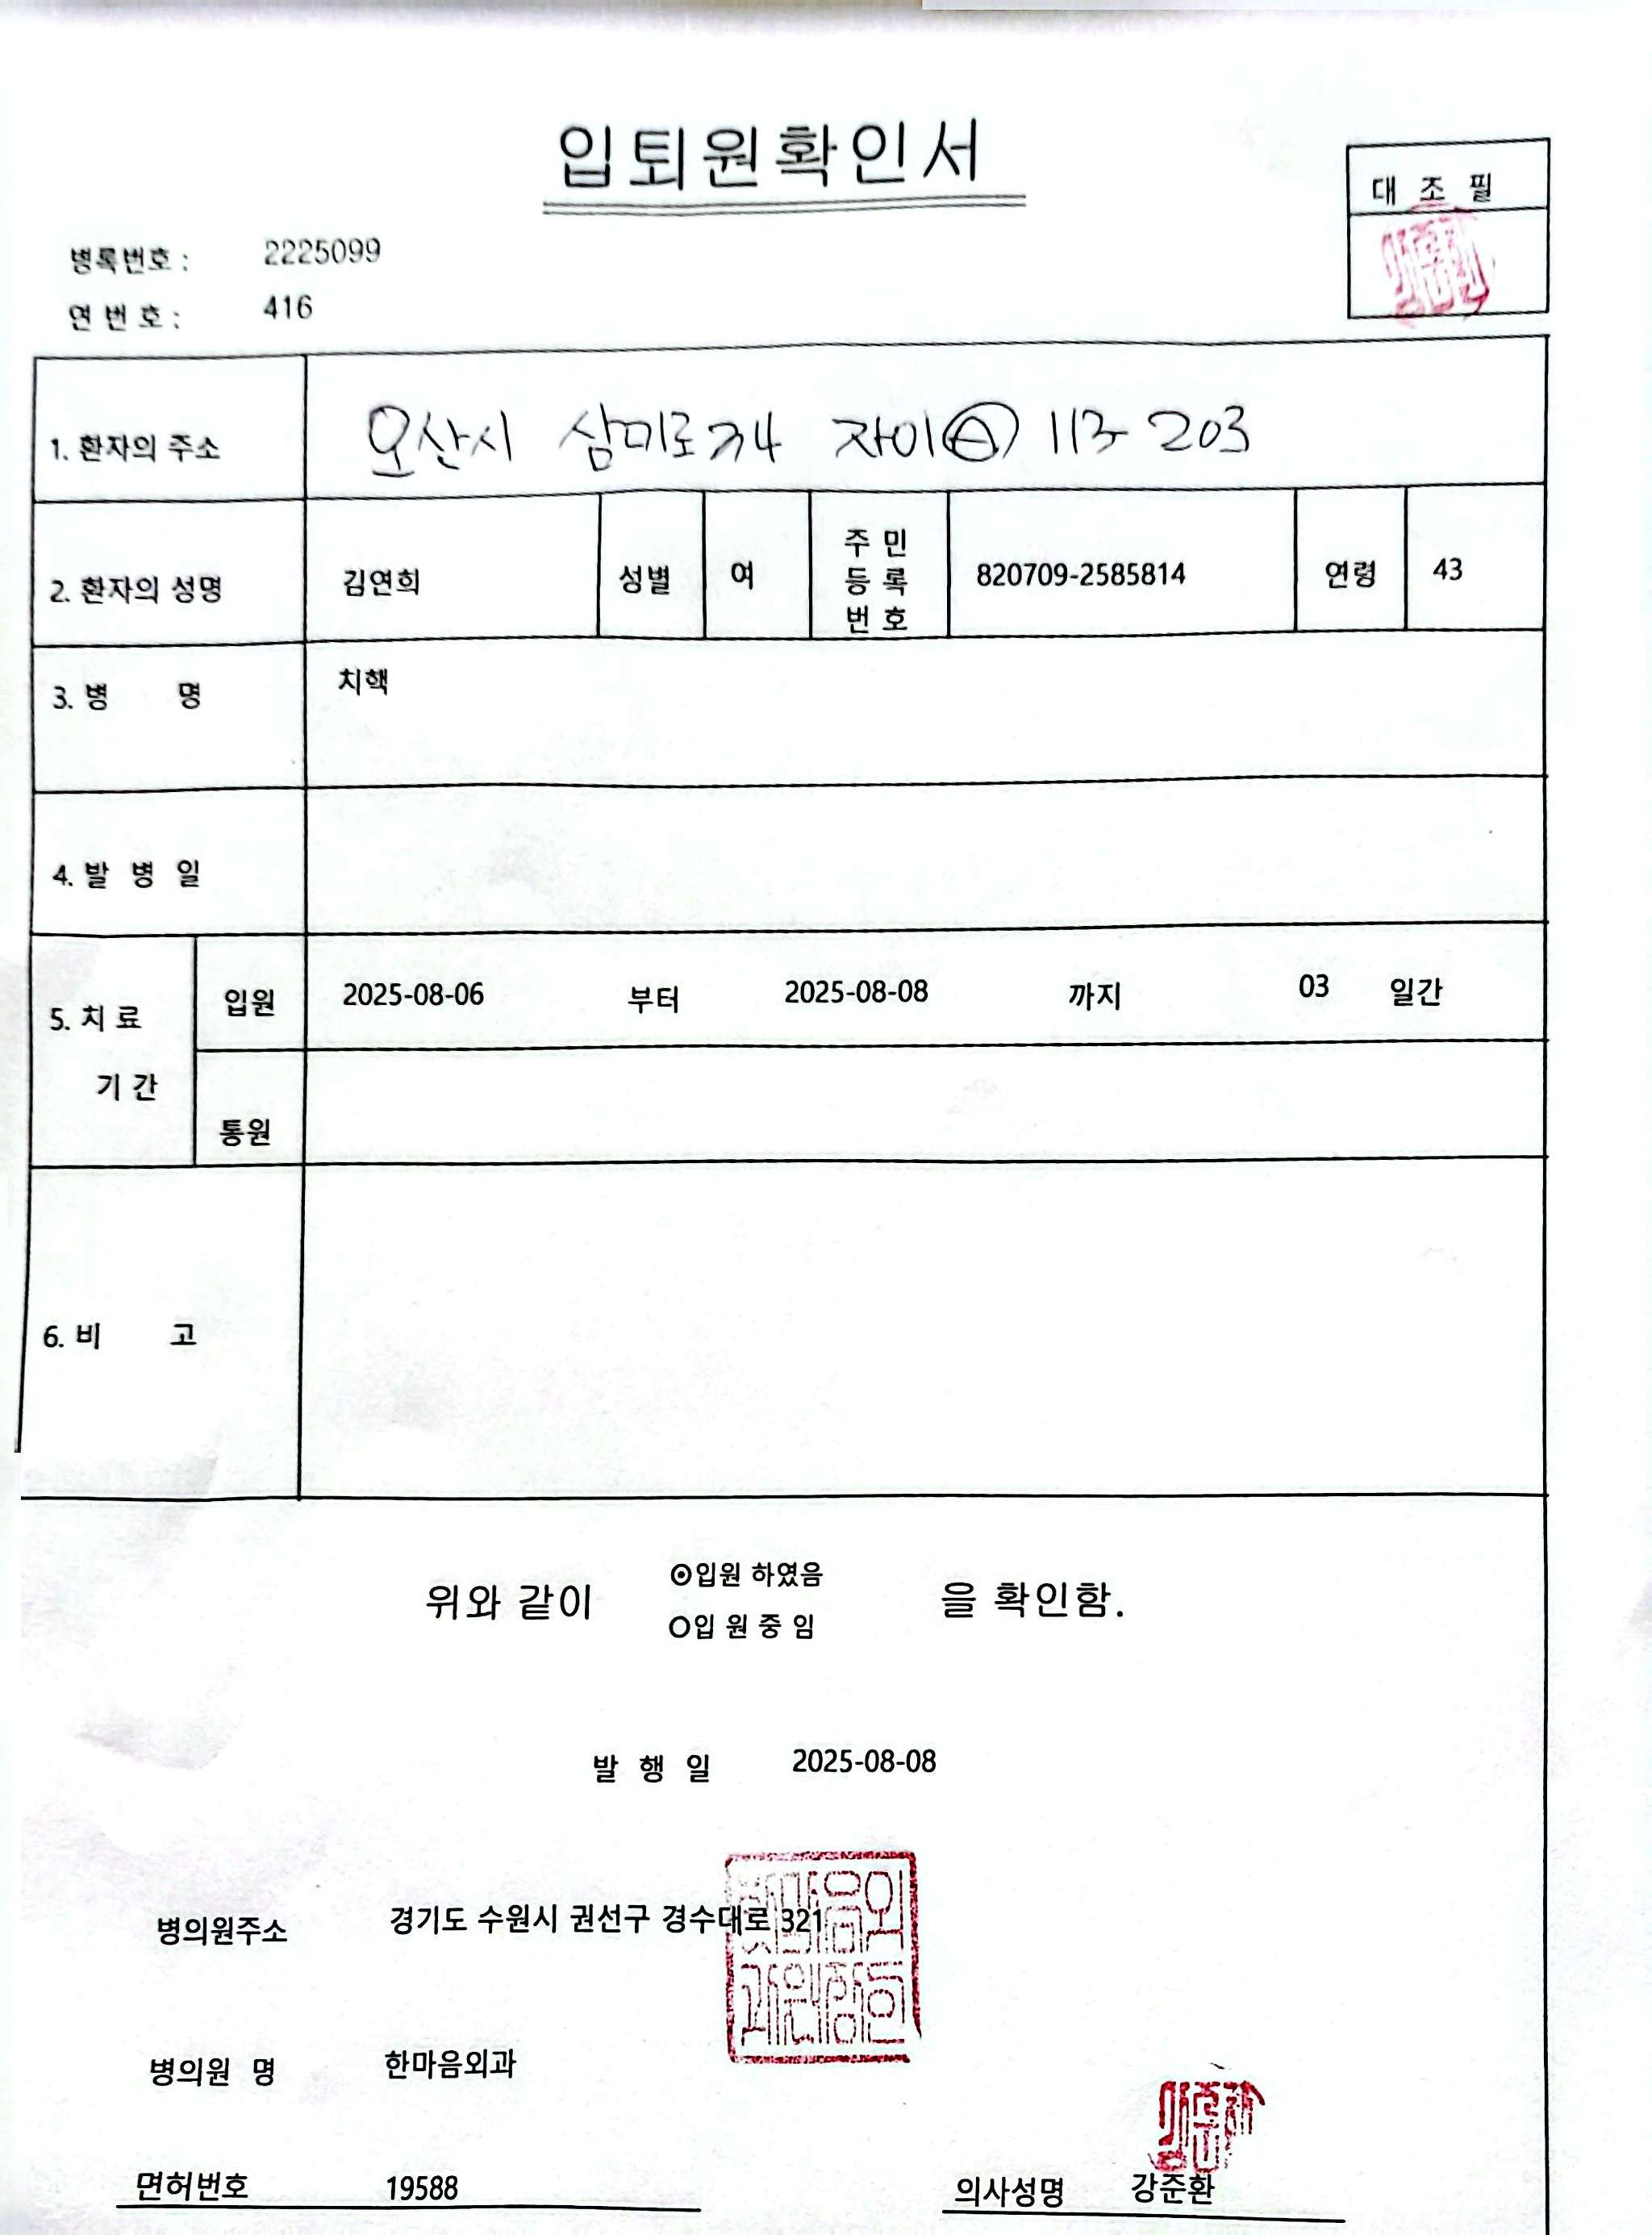 입퇴원확인서
대 조 필
병록번호 : 2225099
연 번 호 : 416
1. 환자의 주소 오산시 삼미로34 자이Ⓐ 113-203
2. 환자의 성명 김연희 성별 여 주민등록번호 820709-2585814 연령 43
3. 병 명 치핵
4. 발 병 일
5. 치료 기간
입원 2025-08-06 부터 2025-08-08 까지 03 일간
통원
6. 비 고
위와 같이 ⊙입원 하였음 을 확인함.
○입 원 중 임
발 행 일 2025-08-08
병의원주소 경기도 수원시 권선구 경수대로 321
병의원 명 한마음외과
면허번호 19588 의사성명 강준환